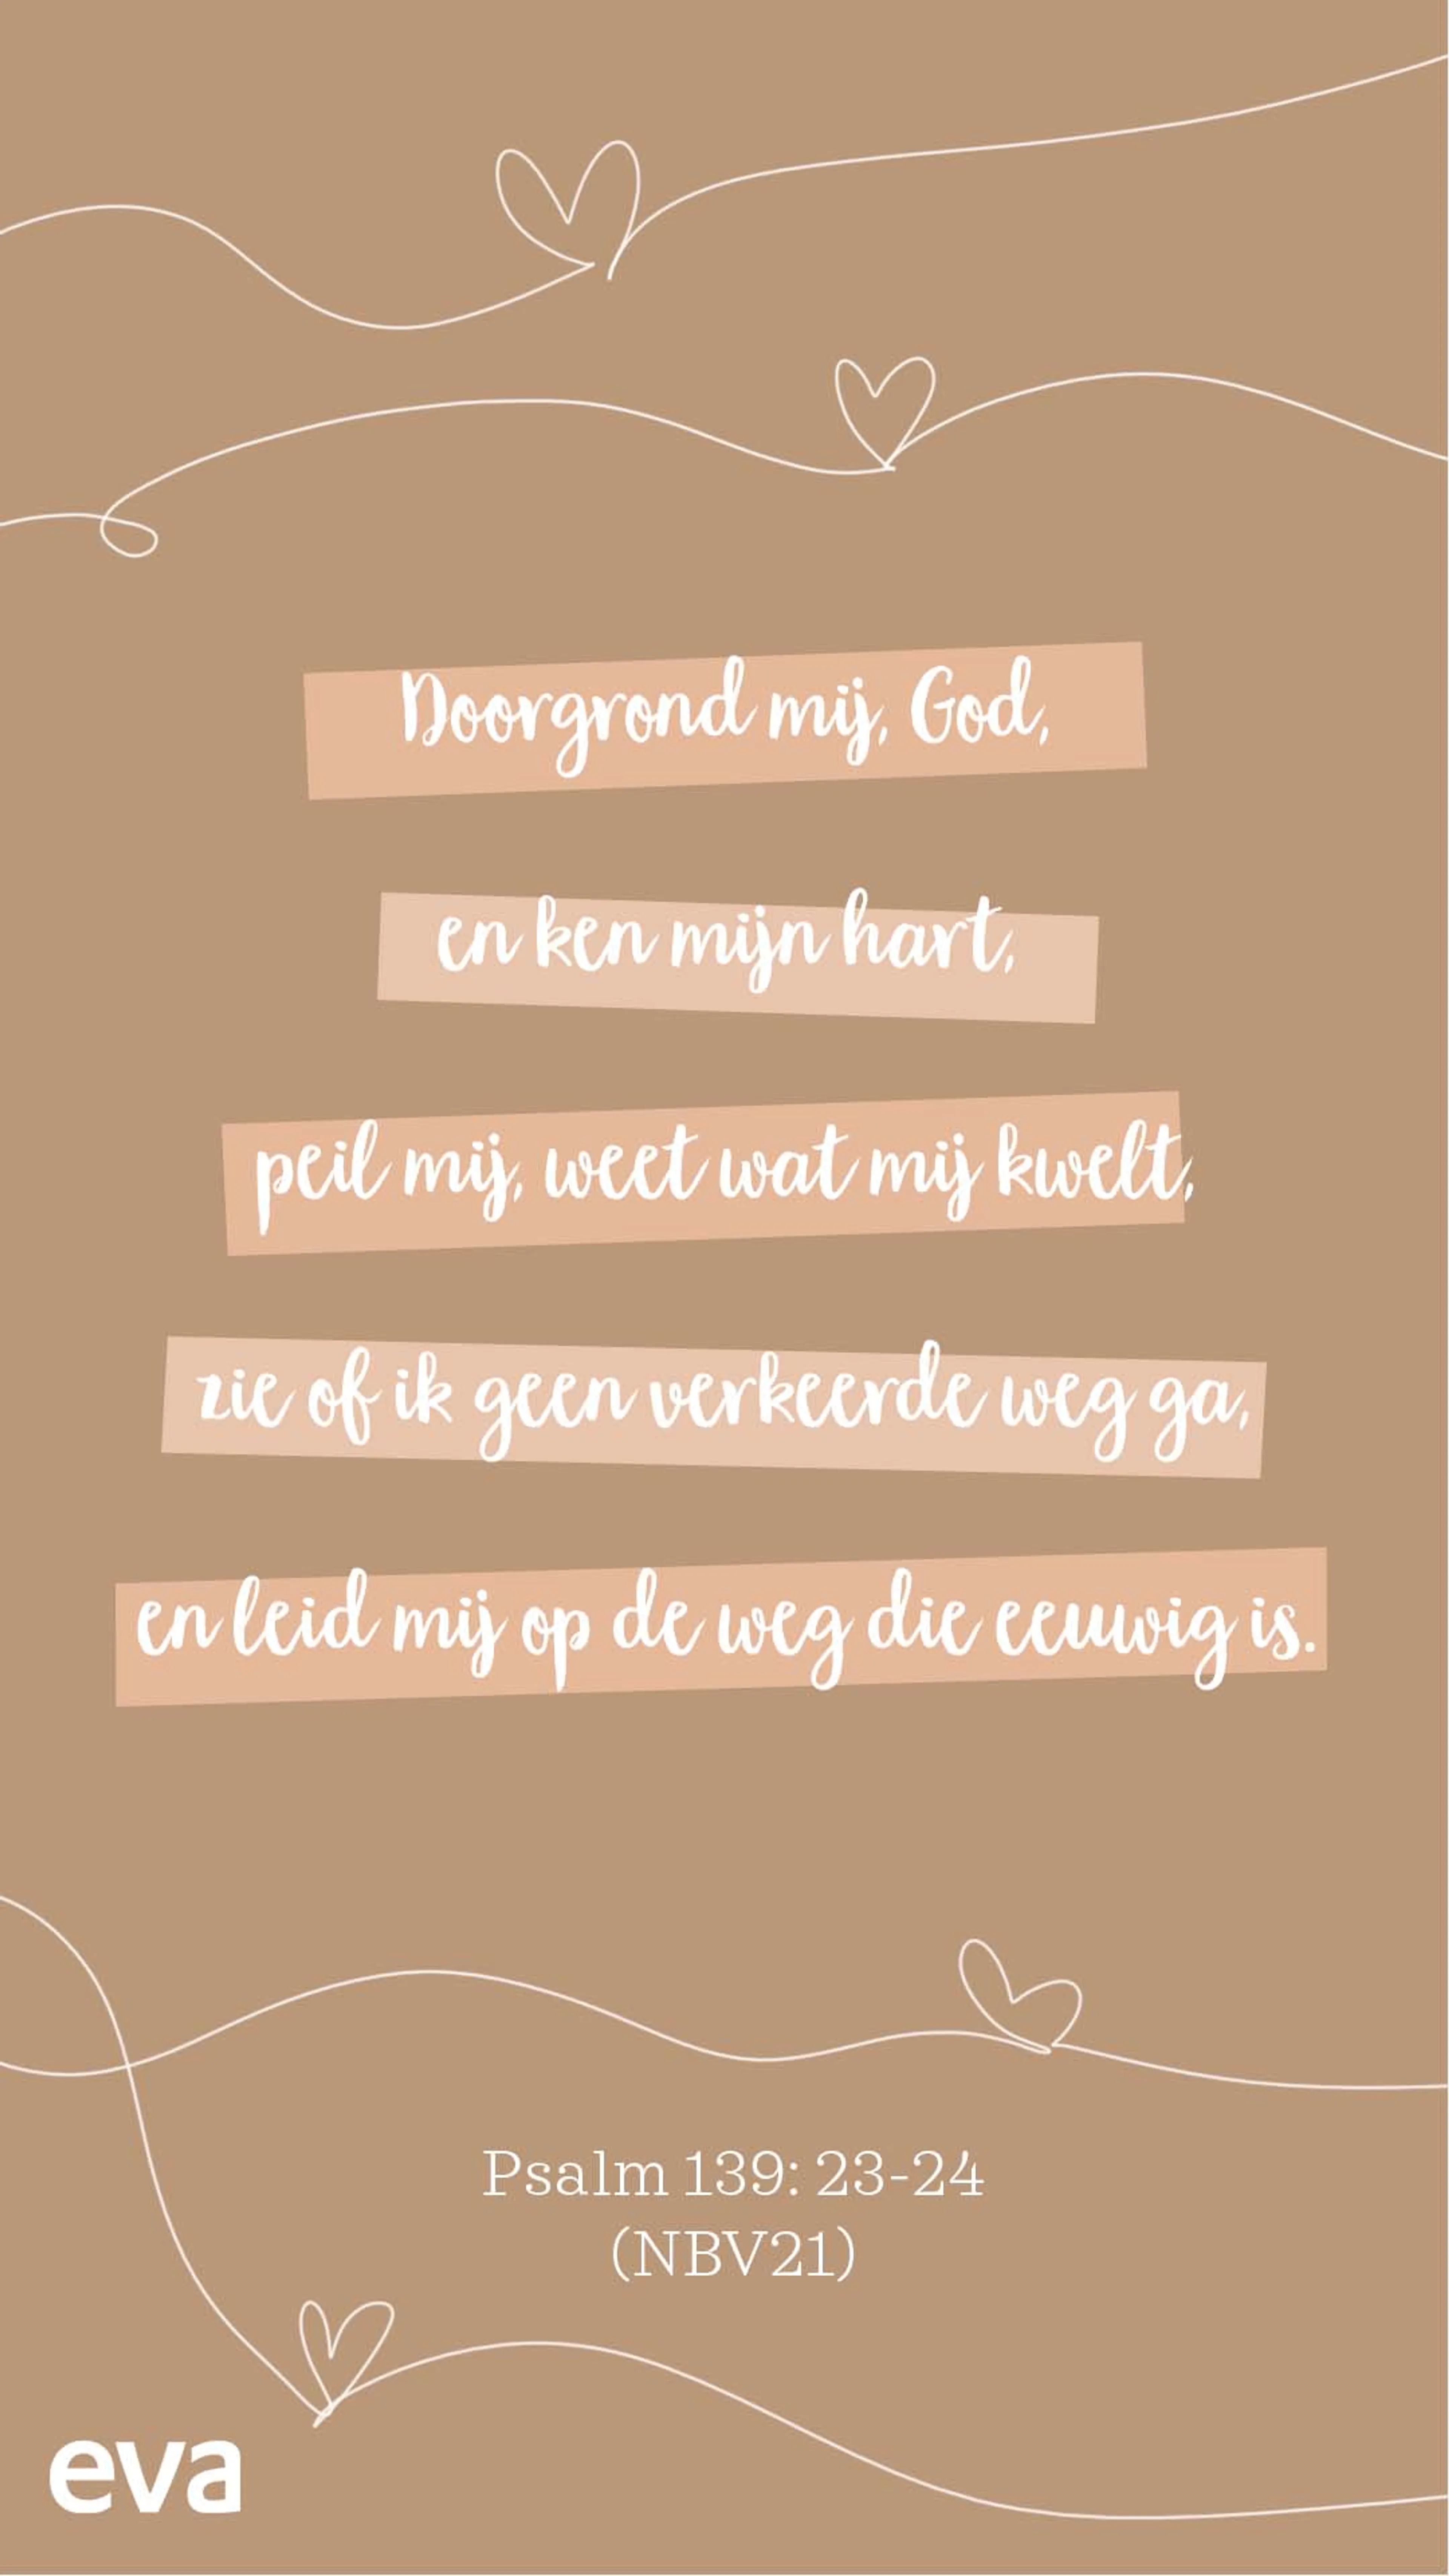 Doorgrond mij, God,
en ken mijn hart,
peil mij, weet wat mij kwelt,
zie of ik geen verkeerde weg ga,
en leid mij op de weg die eeuwig is.
Psalm 139: 23-24
(NBV21)
eva